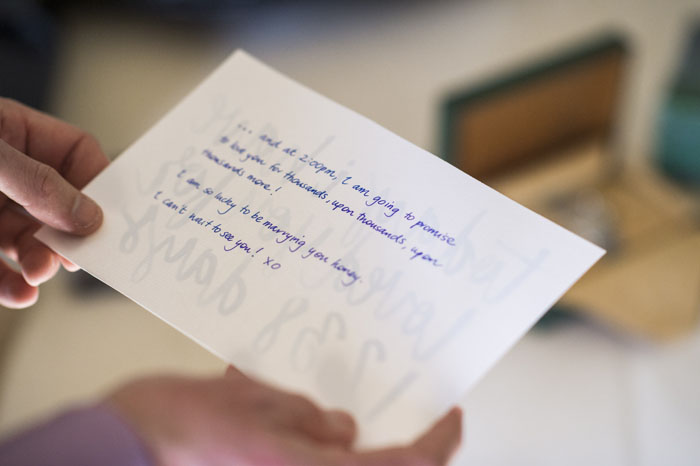 "... and at 2:00pm, I am going to promise
to love you for thousands, upon thousands, upon
thousands more!
I am so lucky to be marrying you honey.
I can't wait to see you! XO